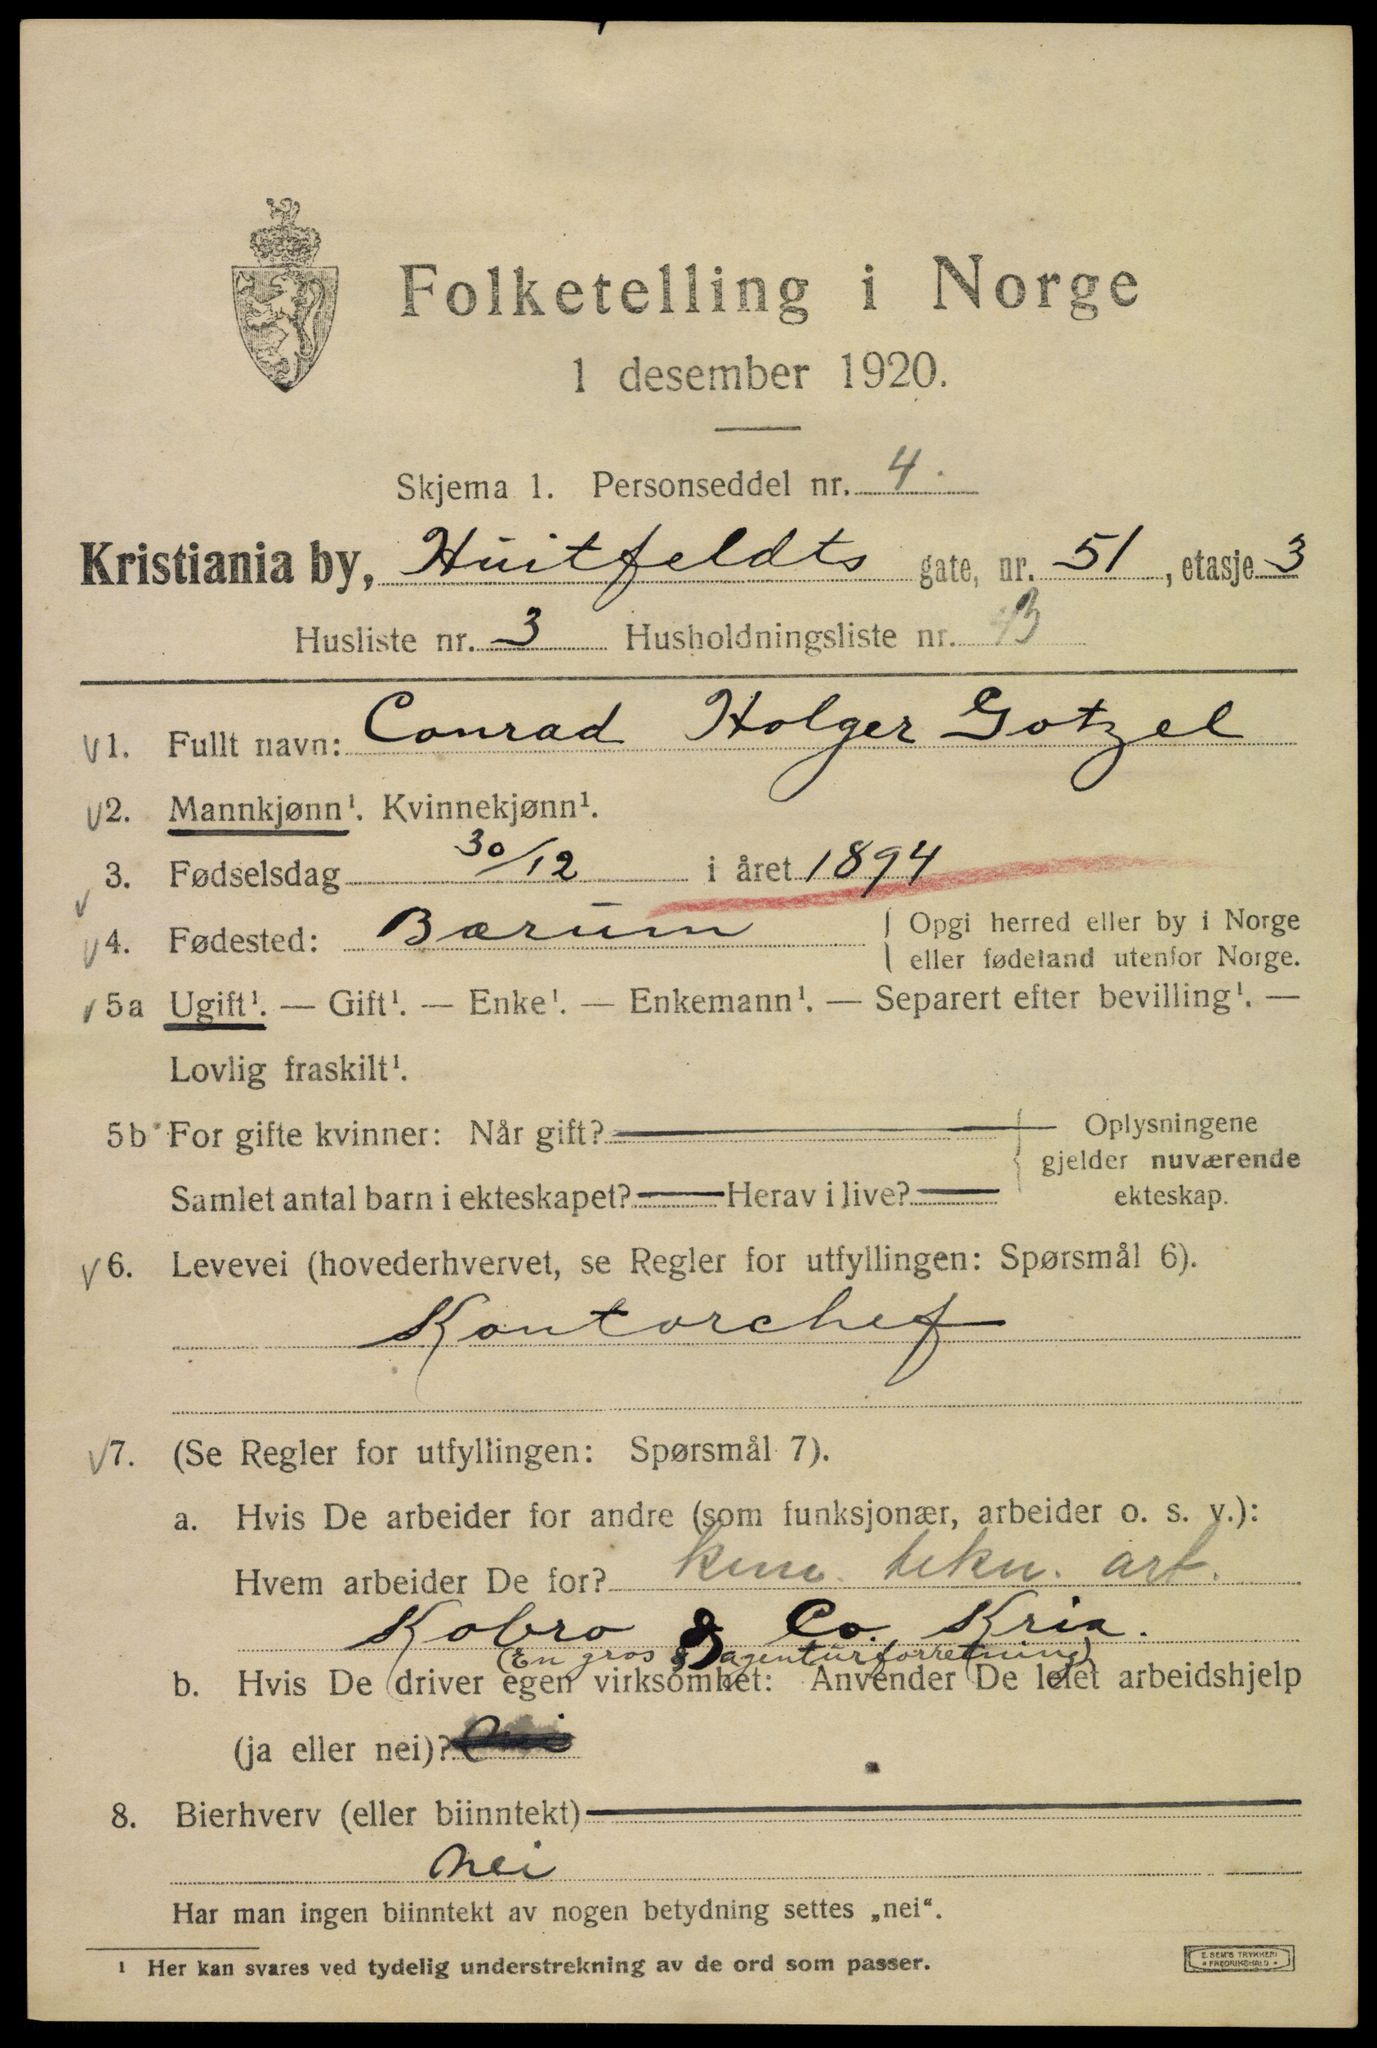 Folketelling i Norge
1 desember 1920.
Skjema 1. Personseddel nr. 4.
Kristiania by, Huitfeldts gate, nr. 51, etasje 3
Husliste nr. 3 Husholdningsliste nr.
1. Fullt navn: Conrad Holger Gotzel
2. Mannkjønn¹. Kvinnekjønn¹.
3. Fødselsdag 30/12 i året 1894
4. Fødested: Bærum { Opgi herred eller by i Norge
eller fødeland utenfor Norge.
5a Ugift¹. — Gift¹. — Enke¹. — Enkemann¹. — Separert efter bevilling¹. —
Lovlig fraskilt¹.
5b For gifte kvinner: Når gift? — Oplysningene
gjelder nuværende
Samlet antal barn i ekteskapet? — Herav i live? — ekteskap.
6. Levevei (hovederhvervet, se Regler for utfyllingen: Spørsmål 6).
Kontorchef
7. (Se Regler for utfyllingen: Spørsmål 7).
a. Hvis De arbeider for andre (som funksjonær, arbeider o. s. v.):
Hvem arbeider De for? tekn. art.
Kobro & Co. Kria.
(En gros & agenturforretning)
b. Hvis De driver egen virksomhet: Anvender De leiet arbeidshjelp
(ja eller nei)?
8. Bierhverv (eller biinntekt) —
Nei
Har man ingen biinntekt av nogen betydning settes „nei“.
¹ Her kan svares ved tydelig understrekning av de ord som passer.
E. SEM'S TRYKKERI
FREDRIKSHALD